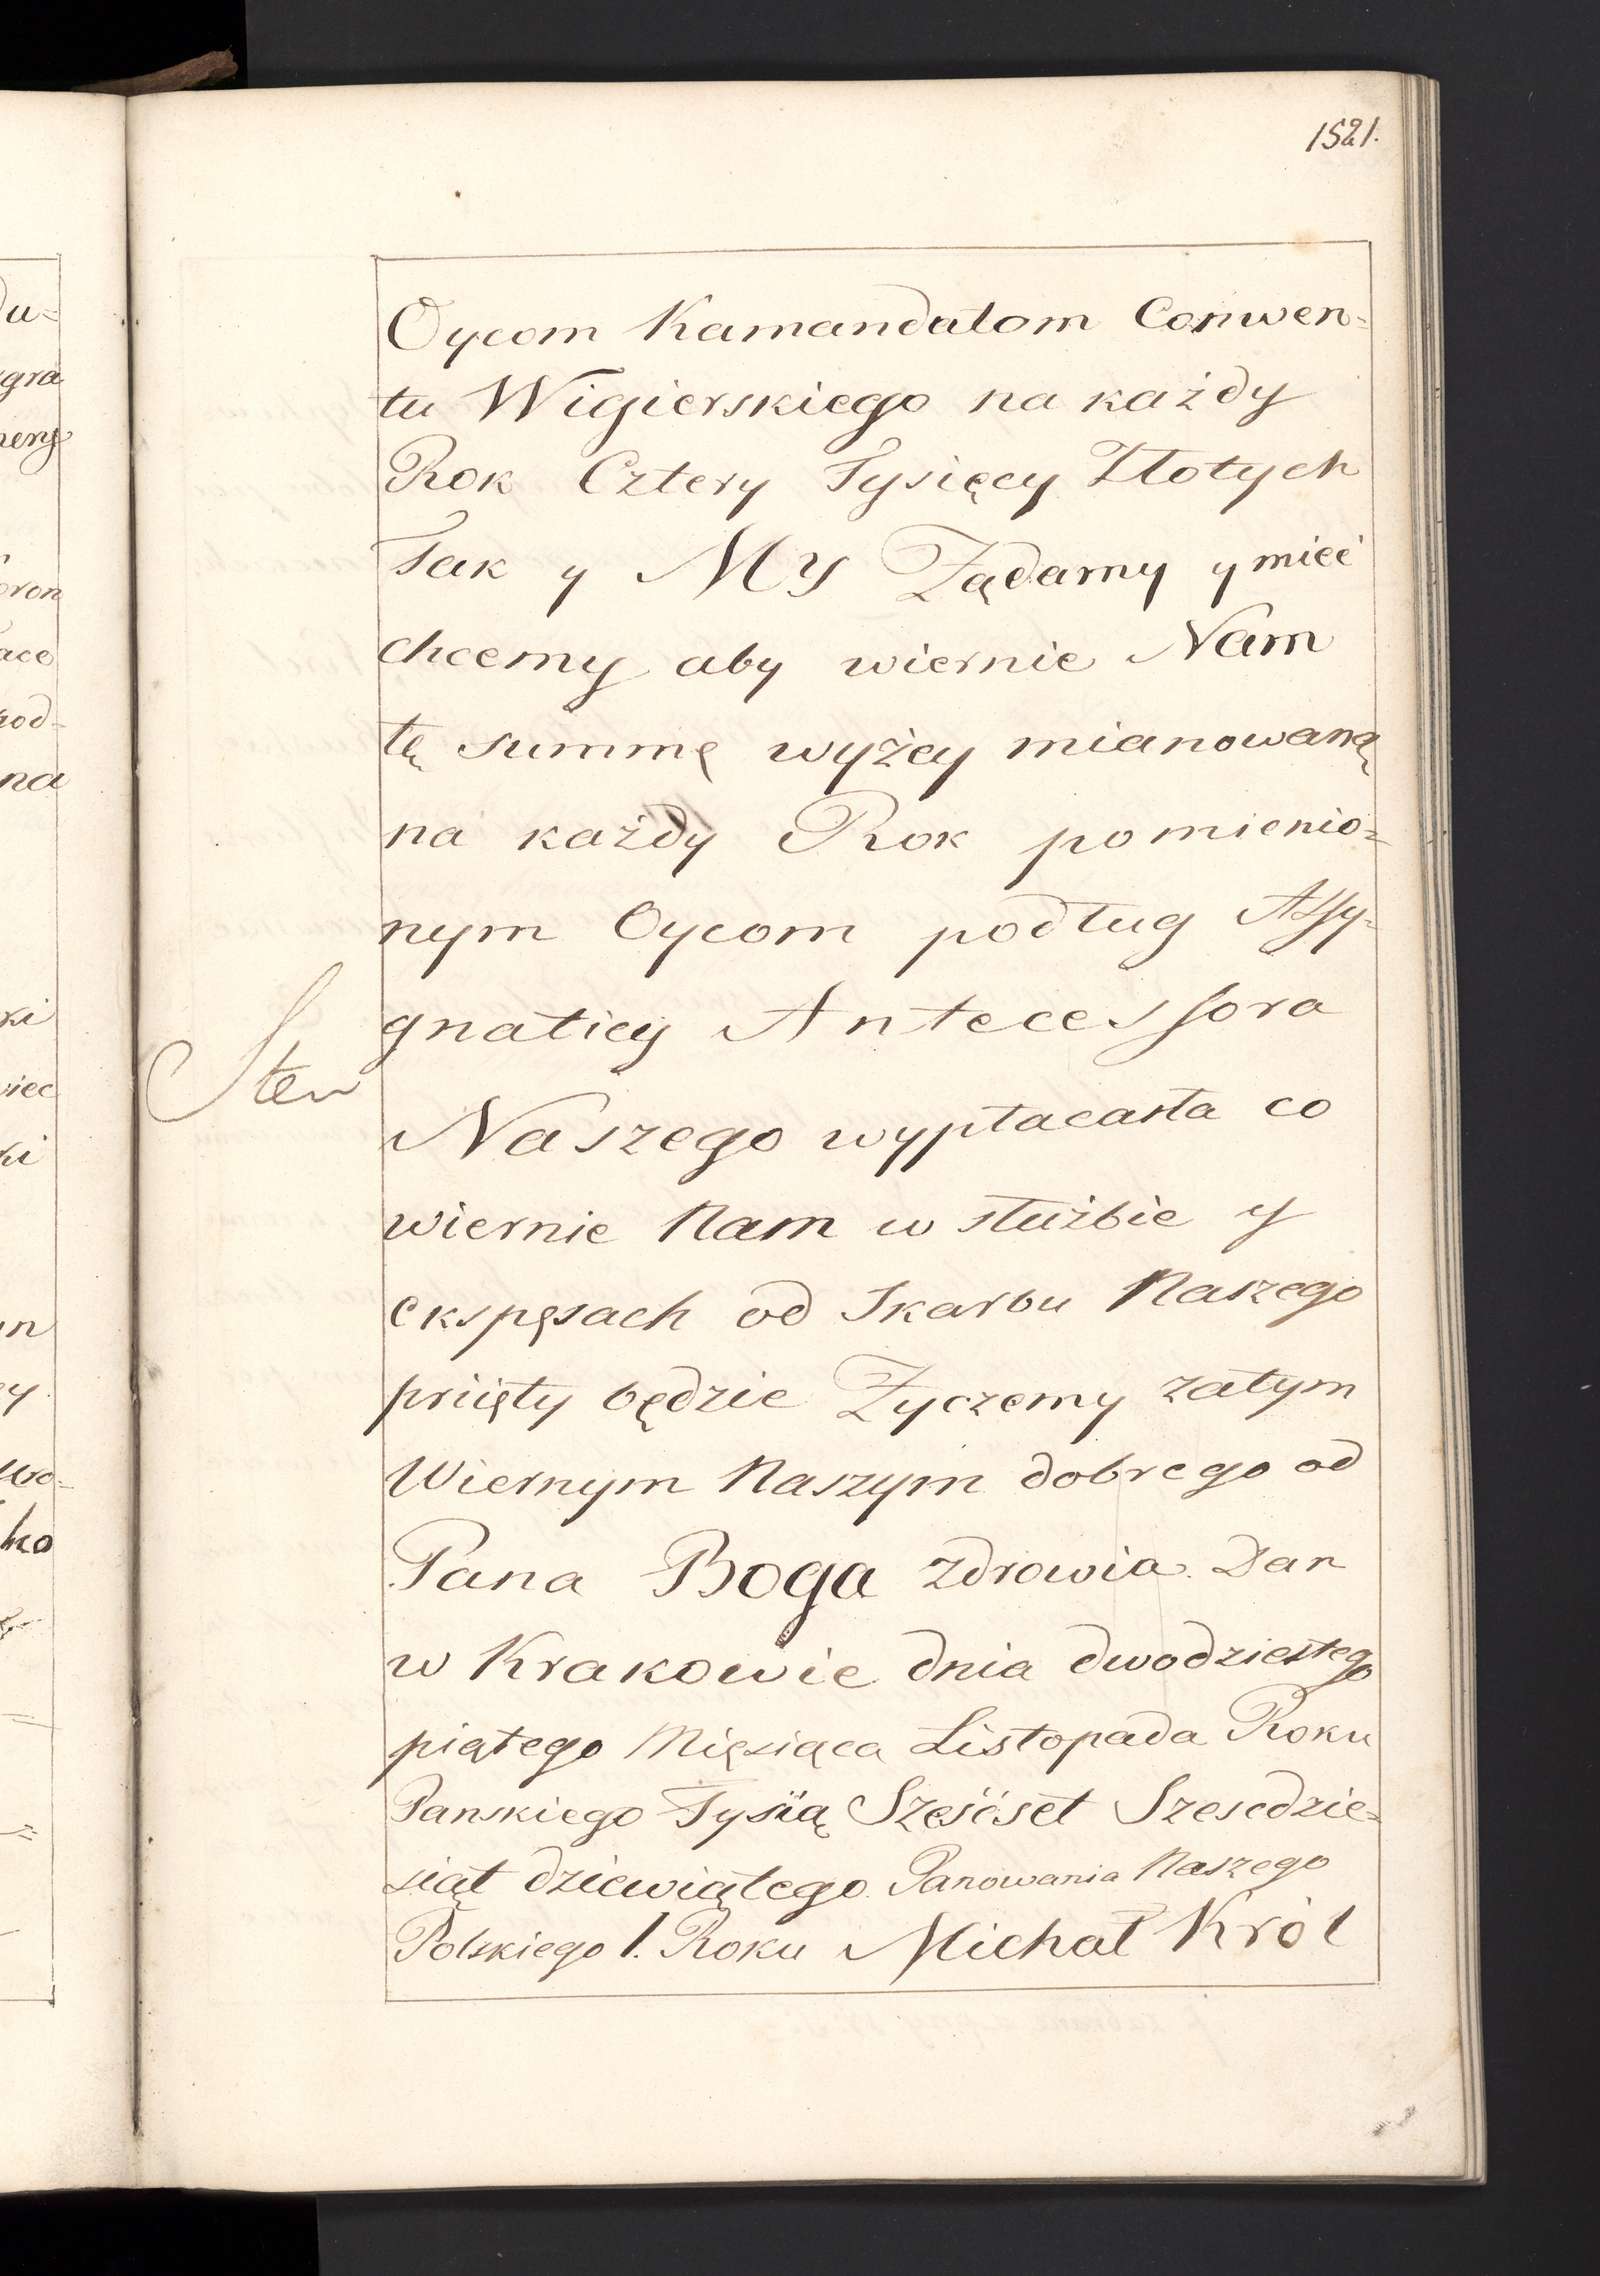 1521.
Oycom Kamandałom Conwen=
tu Wigierskiego na każdy
Rok Cztery Tysięcy Złotych
Tak y MY Żądamy y mieć
chcemy aby wiernie Nam
tę summę wyżey mianowaną
na każdy Rok pomienio=
nym Oycom podług Assy=
gnaticy Antecessora
Naszego wypłacasta co
wiernie Nam w służbie y
ekspęsach od Skarbu Naszego
priięty będzie Życzemy zatym
Wiernym Naszym dobrego od
Pana Boga zdrowia. Dan
w Krakowie dnia dwodziestego
piątego Mięsiąca Listopada Roku
Panskiego Tysią Sześćset Szescdzie=
siąt dziewiątego. Panowania Naszego
Polskiego 1. Roku Michał Król